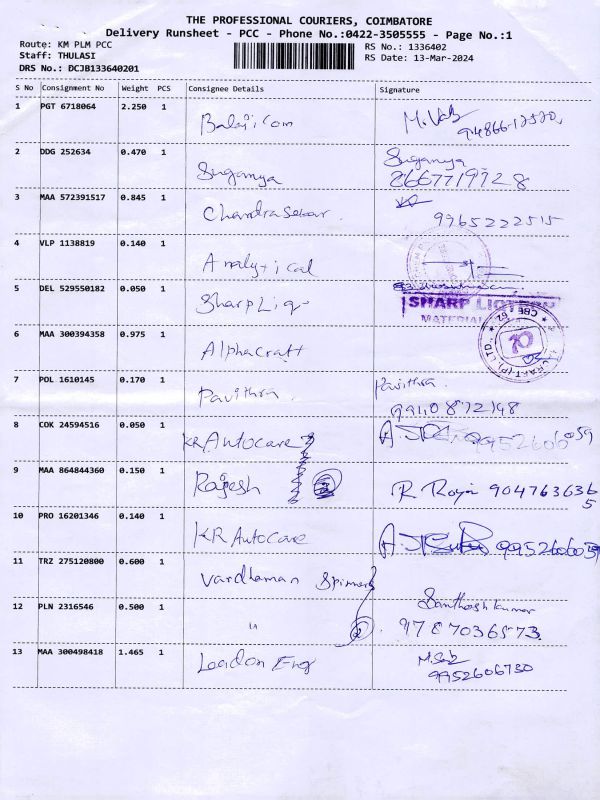 THE PROFESSIONAL COURIERS, COIMBATORE
Delivery Runsheet - PCC - Phone No.:0422-3505555 - Page No.:1
Route: KM PLM PCC
RS No.: 1336402
Staff: THULASI
RS Date: 13-Mar-2024
DRS No.: DCJB133640201
S No Consignment No Weight PCS Consignee Details Signature
1 PGT 6718064 2.250 1
Balaji com
2 DDG 252634 0.470 1 Suganya
Suganya
3 MAA 572391517 0.845 1
9965222515
4 VLP 1138819 0.140 1
Analytical
5 DEL 529550182 0.050 1
Sharp Liq
SHARP
MATERIAL
6 MAA 300394358 0.975 1
AlphaCraft
7 POL 1610145 0.170 1 Pavithra.
Pavithra.
8 COK 24594516 0.050 1
KR Autocare
9 MAA 864844360 0.150 1
Rajesh
10 PRO 16201346 0.140 1
KR Autocare
11 TRZ 275120800 0.600 1
Vardhaman Spinners
12 PLN 2316546 0.500 1 Santhosh kumar
9787036573
13 MAA 300498418 1.465 1
London Eng
9952606730